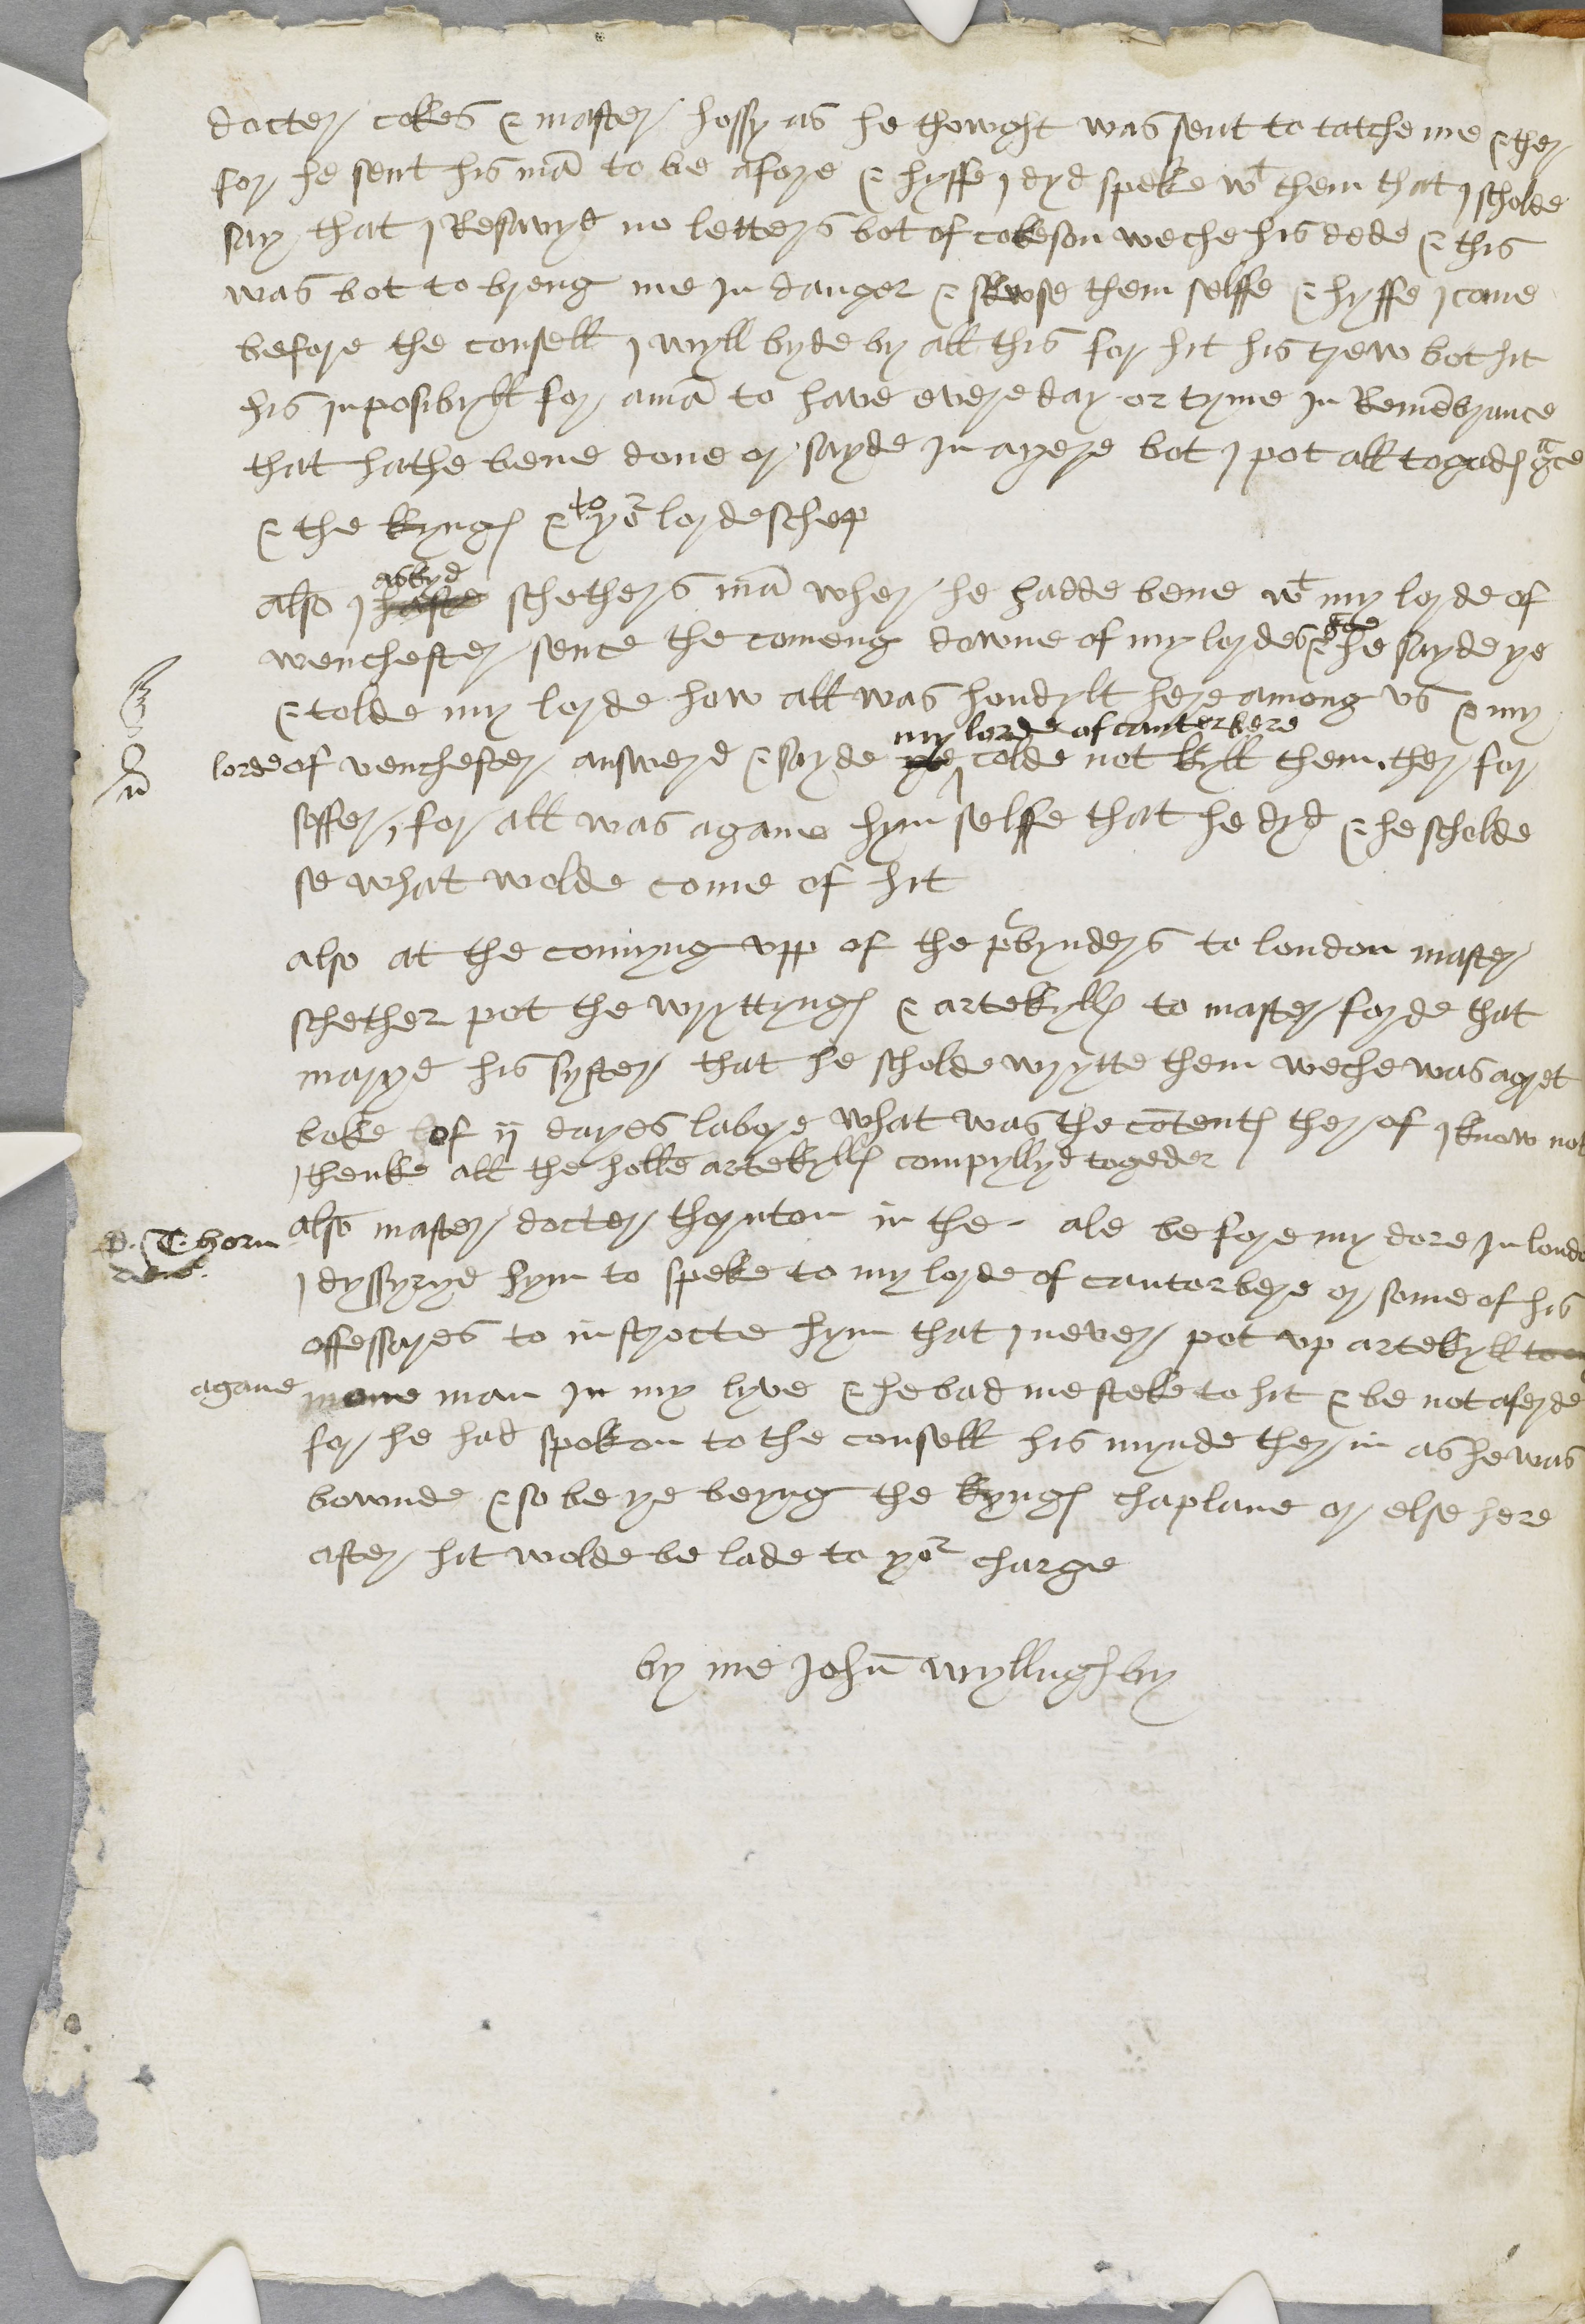 docter cokes & master hossy as he thowght was sent to tatche me & ther
for he sent his mā to be afore & hyffe I dyd speke wt them that I scholde
say that I Resavyd no letters bot of cokeson weche his dede & this
was bot to breng me In danger & skewse them selffe & hyffe I come
before the consell I wyll byde by all this for hit his trew bot hit
his Inposibyll for a mā to have overe day or tyme In Remēbrance
that hathe bene done or sayde In a yere bot I pot all to godes gce
& the kynges & to yor lordeschep
also I asbyd schethers mā wher he hadde bene wt my lorde of
wenchester sence the comeng downe of my lordes gce & he sayde ye
& tolde my lorde how all was hondylt here among vs & my
lorde of venchester answerd & sayde my lorde of canterbere colde not kyll them ther for
soffer, for all was agane hym selffe that he dyd & he scholde
se what wolde come of hit
also at the comyng vpp of the prbynders to london master
schether pot the wryttynges & artekylles to master forde that
maryd his syster that he scholde wrytte them weche was a gret
boke of ij dayes labore what was the cōtentes ther of I know not
I thenke all the holle artekylles compyllyd togeder
D. Thorn
dene.
also master docter thornton in the ale be fore my dore In londo
I dyssyryd hym to speke to my lorde of cantorbere or some of his
offessares to instrocte hym that I never pot vp artekyll to
agane mane man In my lyve & he bad me steke to hit & be not aferde
for he had spokon to the consell his mynde ther in as he was
bownde & so be ye beyng the kynges chaplane or else here
after hit wolde be lade to yor charge
by me John wyllughby